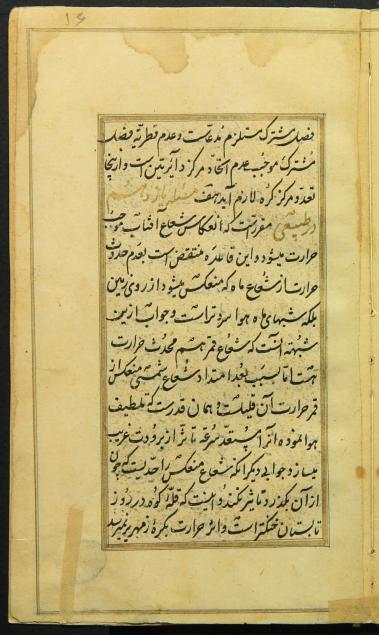 ۱۶
فصل مشترک مستلزم مدعاست و عدم قطریة فصل
مشترک موجب عدم اتحاد مرکز دائرتین است و ازینجا
تعدد مرکز کره لازم آید هف مسئله یازدهم
در طبیعی مقرر است که انعکاس شعاع آفتاب موجب
حرارت میشود و این قاعده منتقض است بعدم حدوث
حرارت از شعاع ماه که منعکس میشود از روی زمین
بلکه شبهای ماه هوا سردتر است و جواب ازین
شبهه آنست که شعاع قمر هم محدث حرارت
هست اما بسبب بعد امتداد شعاع شمسی منعکس از
قمر حرارت آن قلیلست و همان قدرت که تلطیف
هوا نموده آنرا مستعد سرعه تاثر از برودت غریب
میسازد و جوابی دیگر آنکه شعاع منعکس احدیست که چون
از آن بگذرد تاثیر نکند و اینست که قله کوه در روز
تابستان خنکتر است و اثر حرارت بکره زمهریر نمیرسد